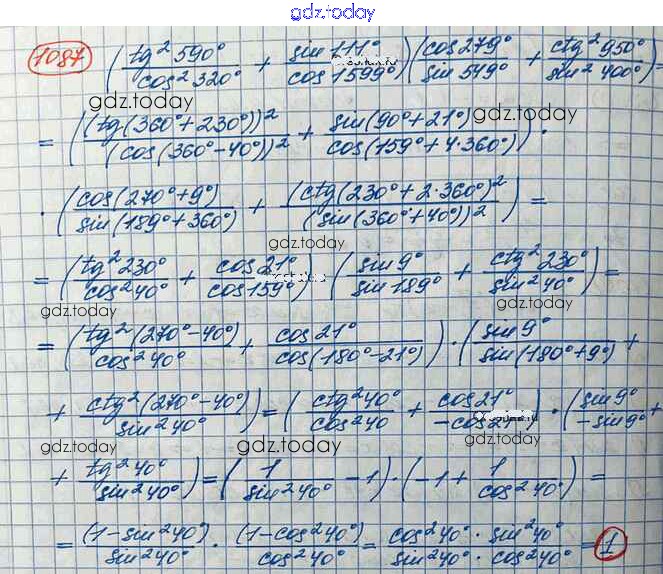 gdz.today
1087 (tg² 590° / cos² 320° + sin 111° / cos 1599°)(cos 279° / sin 549° + ctg² 950° / sin² 400°) =
gdz.today
= ((tg(360° + 230°))² / (cos(360° - 40°))² + sin(90° + 21°) / cos(159° + 4·360°)) ·
gdz.today
· (cos(270° + 9°) / sin(189° + 360°) + (ctg(230° + 2·360°)² / (sin(360° + 40°))²) =
gdz.today
= (tg² 230° / cos² 40° + cos 21° / cos 159°) · (sin 9° / sin 189° + ctg² 230° / sin² 40°) =
gdz.today
= (tg²(270° - 40°) / cos² 40° + cos 21° / cos(180° - 21°)) · (sin 9° / sin(180° + 9°) +
gdz.today
+ ctg²(270° - 40°) / sin² 40°) = (ctg² 40° / cos² 40 + cos 21° / -cos 21°) · (sin 9° / -sin 9° +
gdz.today
gdz.today
+ tg² 40° / sin² 40°) = (1 / sin² 40° - 1) · (-1 + 1 / cos² 40°) =
gdz.today
= (1 - sin² 40°) / sin² 40° · (1 - cos² 40°) / cos² 40° = cos² 40° · sin² 40° / sin² 40° · cos² 40° = 1